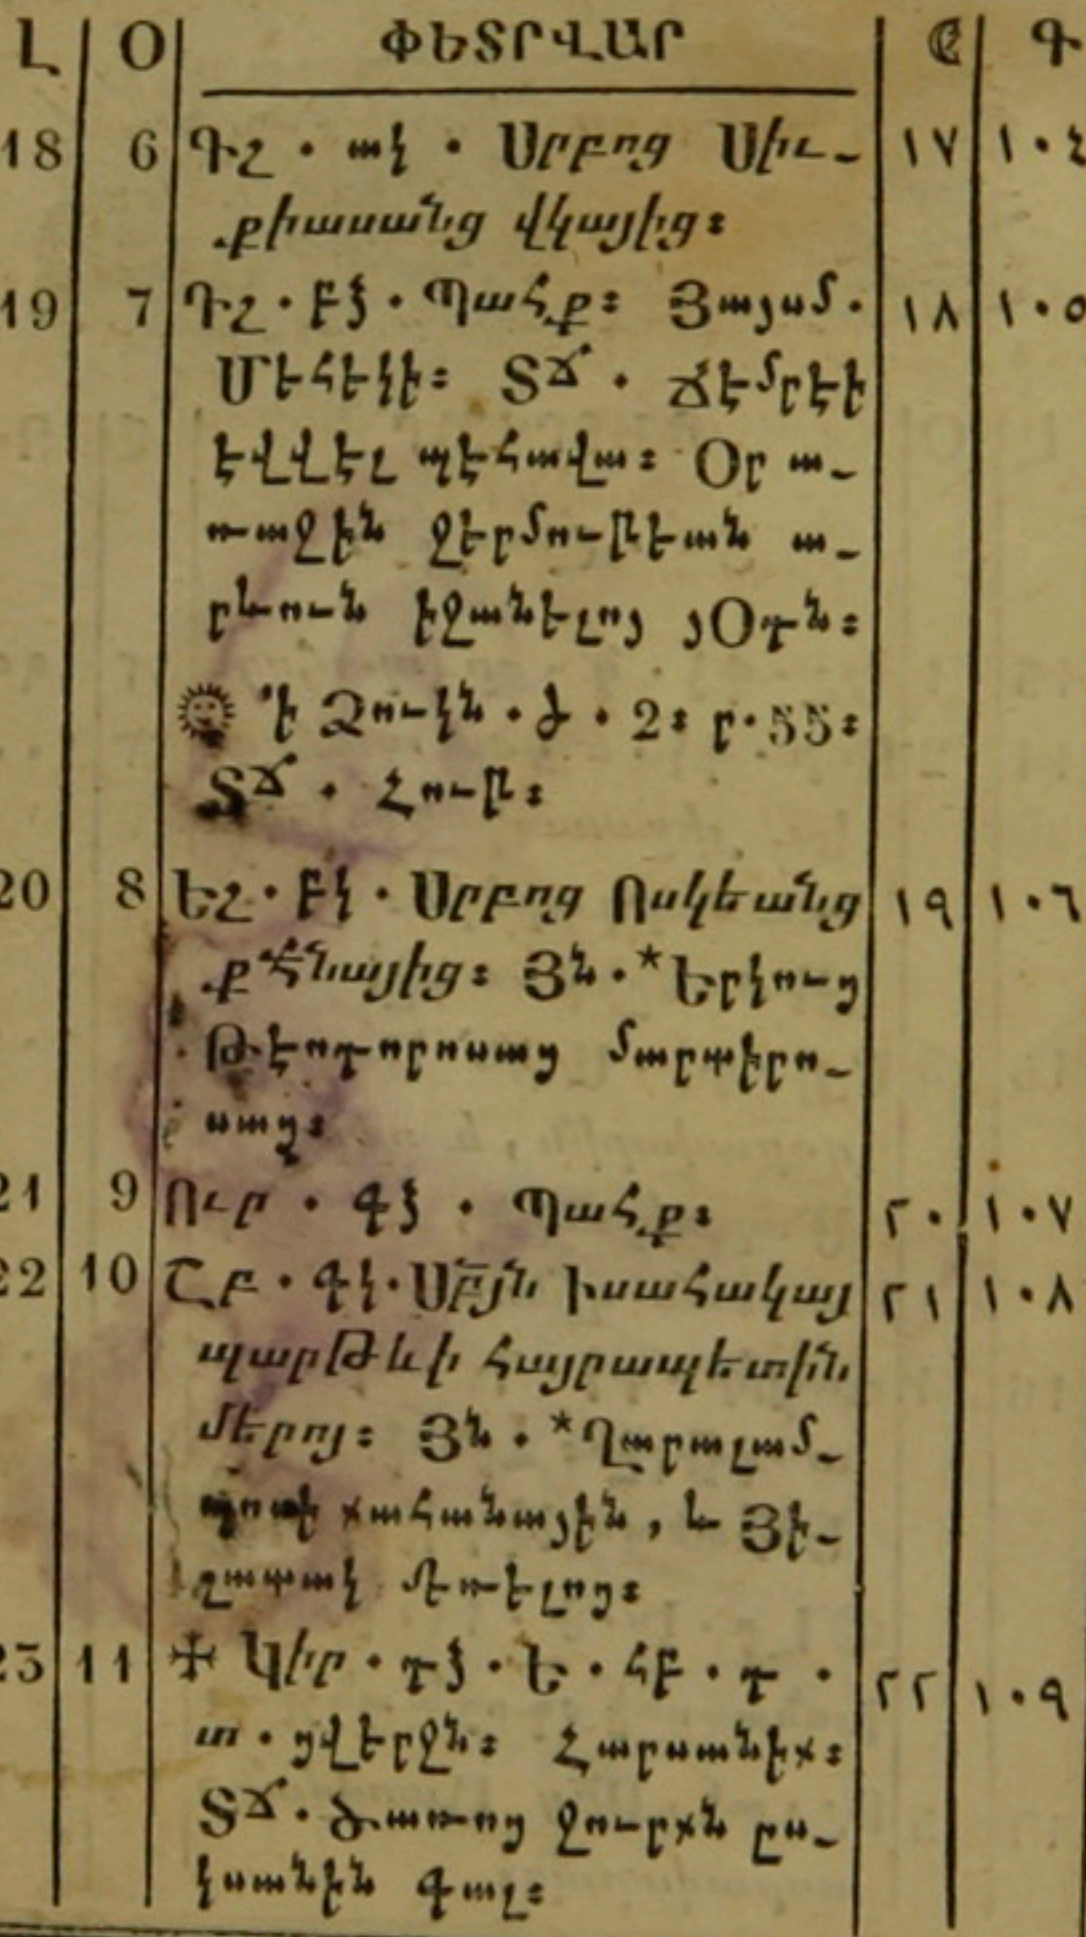 Լ Օ ՓԵՏՐՎԱՐ Ը Գ
18 6 Դշ · ակ · Սրբոց Սիւ- ١٧ ١٠٤
քիասանց վկայից։
19 7 Դշ · բձ · Պահք։ Յայսմ · ١٨ ١٠٥
Մէհէկի։ ՏՃ · ճէմրէի
էվվէլ պէհավա։ Օր ա-
ռաջին ջերմութեան ա-
րևուն իջանելոյ յՕդն։
Ի Ձուկն · ժ · 2։ ր · 55։
ՏՃ · Հութ։
20 8 Եշ · բկ · Սրբոց Ոսկեանց ١٩ ١٠٦
քհնայից։ Յն · *Երկուց
Թէոդորոսաց մարտիրո-
սաց։
21 9 Ուր · գձ · Պահք։ ٢٠ ١٠٧
22 10 Շբ · գկ · Սբյն Իսահակայ ٢١ ١٠٨
պարթևի հայրապետին
մերոյ։ Յն · *Ղարալամ-
պոսի քահանային, և Յի-
շատակ մեռելոց։
23 11 ✠ Կիր · դձ · Ե · հբ · դ · ٢٢ ١٠٩
տ · ցվերջն։ Հարսանիք։
ՏՃ · Ծառոց ջուրքն ըս-
կսանին գալ։